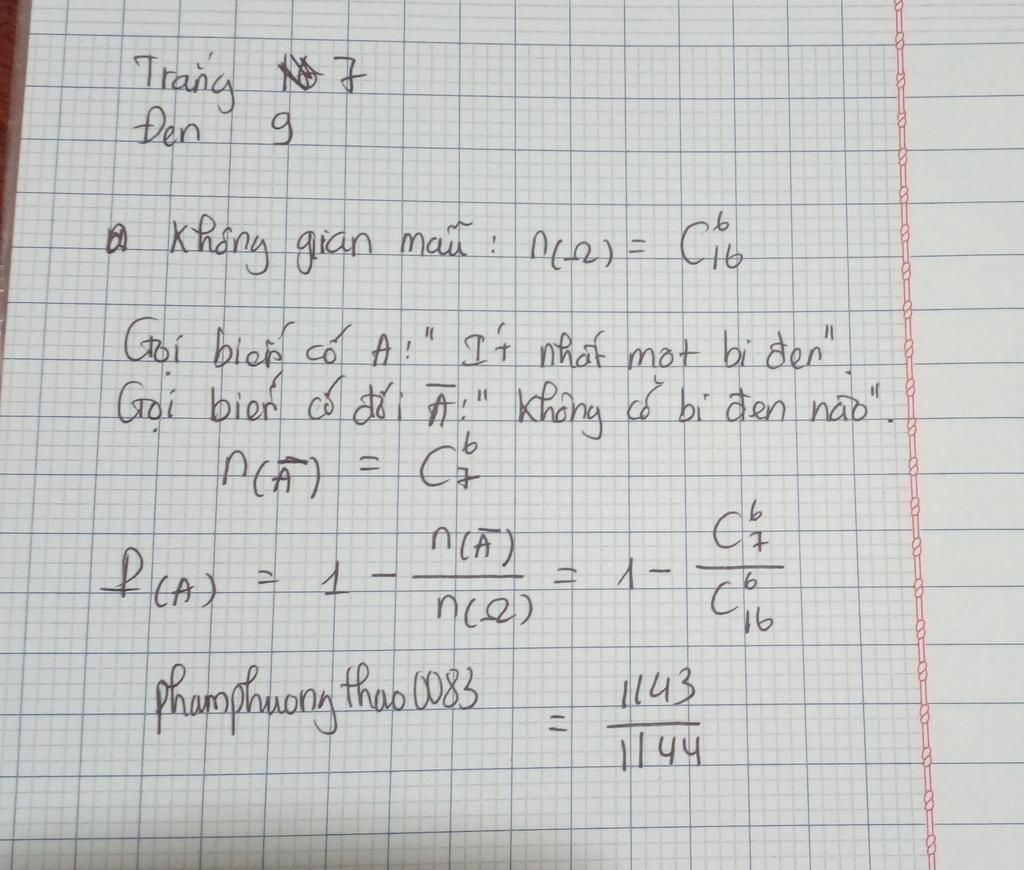 Trắng 7
Đen 9
Không gian mẫu: n(Ω) = C₁₆⁶
Gọi biến cố A: "Ít nhất một bi đen".
Gọi biến cố đối A̅: "Không có bi đen nào".
n(A̅) = C₇⁶
P(A) = 1 - n(A̅)/n(Ω) = 1 - C₇⁶/C₁₆⁶
phamphuongthao0083 = 1143/1144